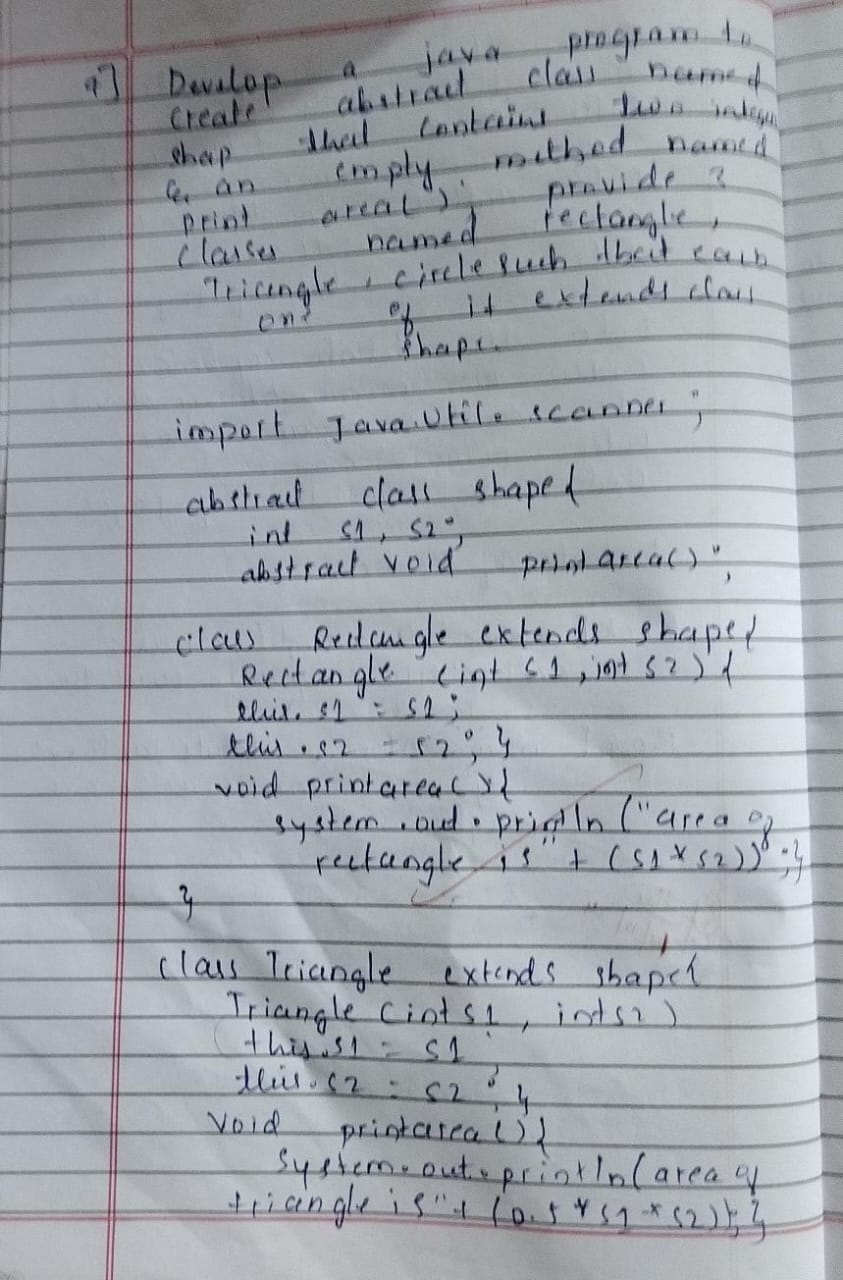 9] Develop a java program to
create abstract class named
shap that contains two integer
& an empty method named
print area(). provide 3
classes named rectangle,
Triangle, circle such that each
one of it extends class
shape.
import Java.Util. scanner ;
abstract class shape{
int s1, s2;
abstract void printarea();
class Rectangle extends shape{
Rectangle (int s1, int s2) {
this. s1 = s1;
this . s2 = s2; }
void printarea( ){
system . out . println ("area of
rectangle is" + (s1 * s2)) ;}
}
class Triangle extends shape{
Triangle (int s1, int s2)
this.s1 = s1
this. s2 = s2 ; }
void printarea(){
system. out. println(area of
triangle is"+ (0.5 * s1 * s2)); }